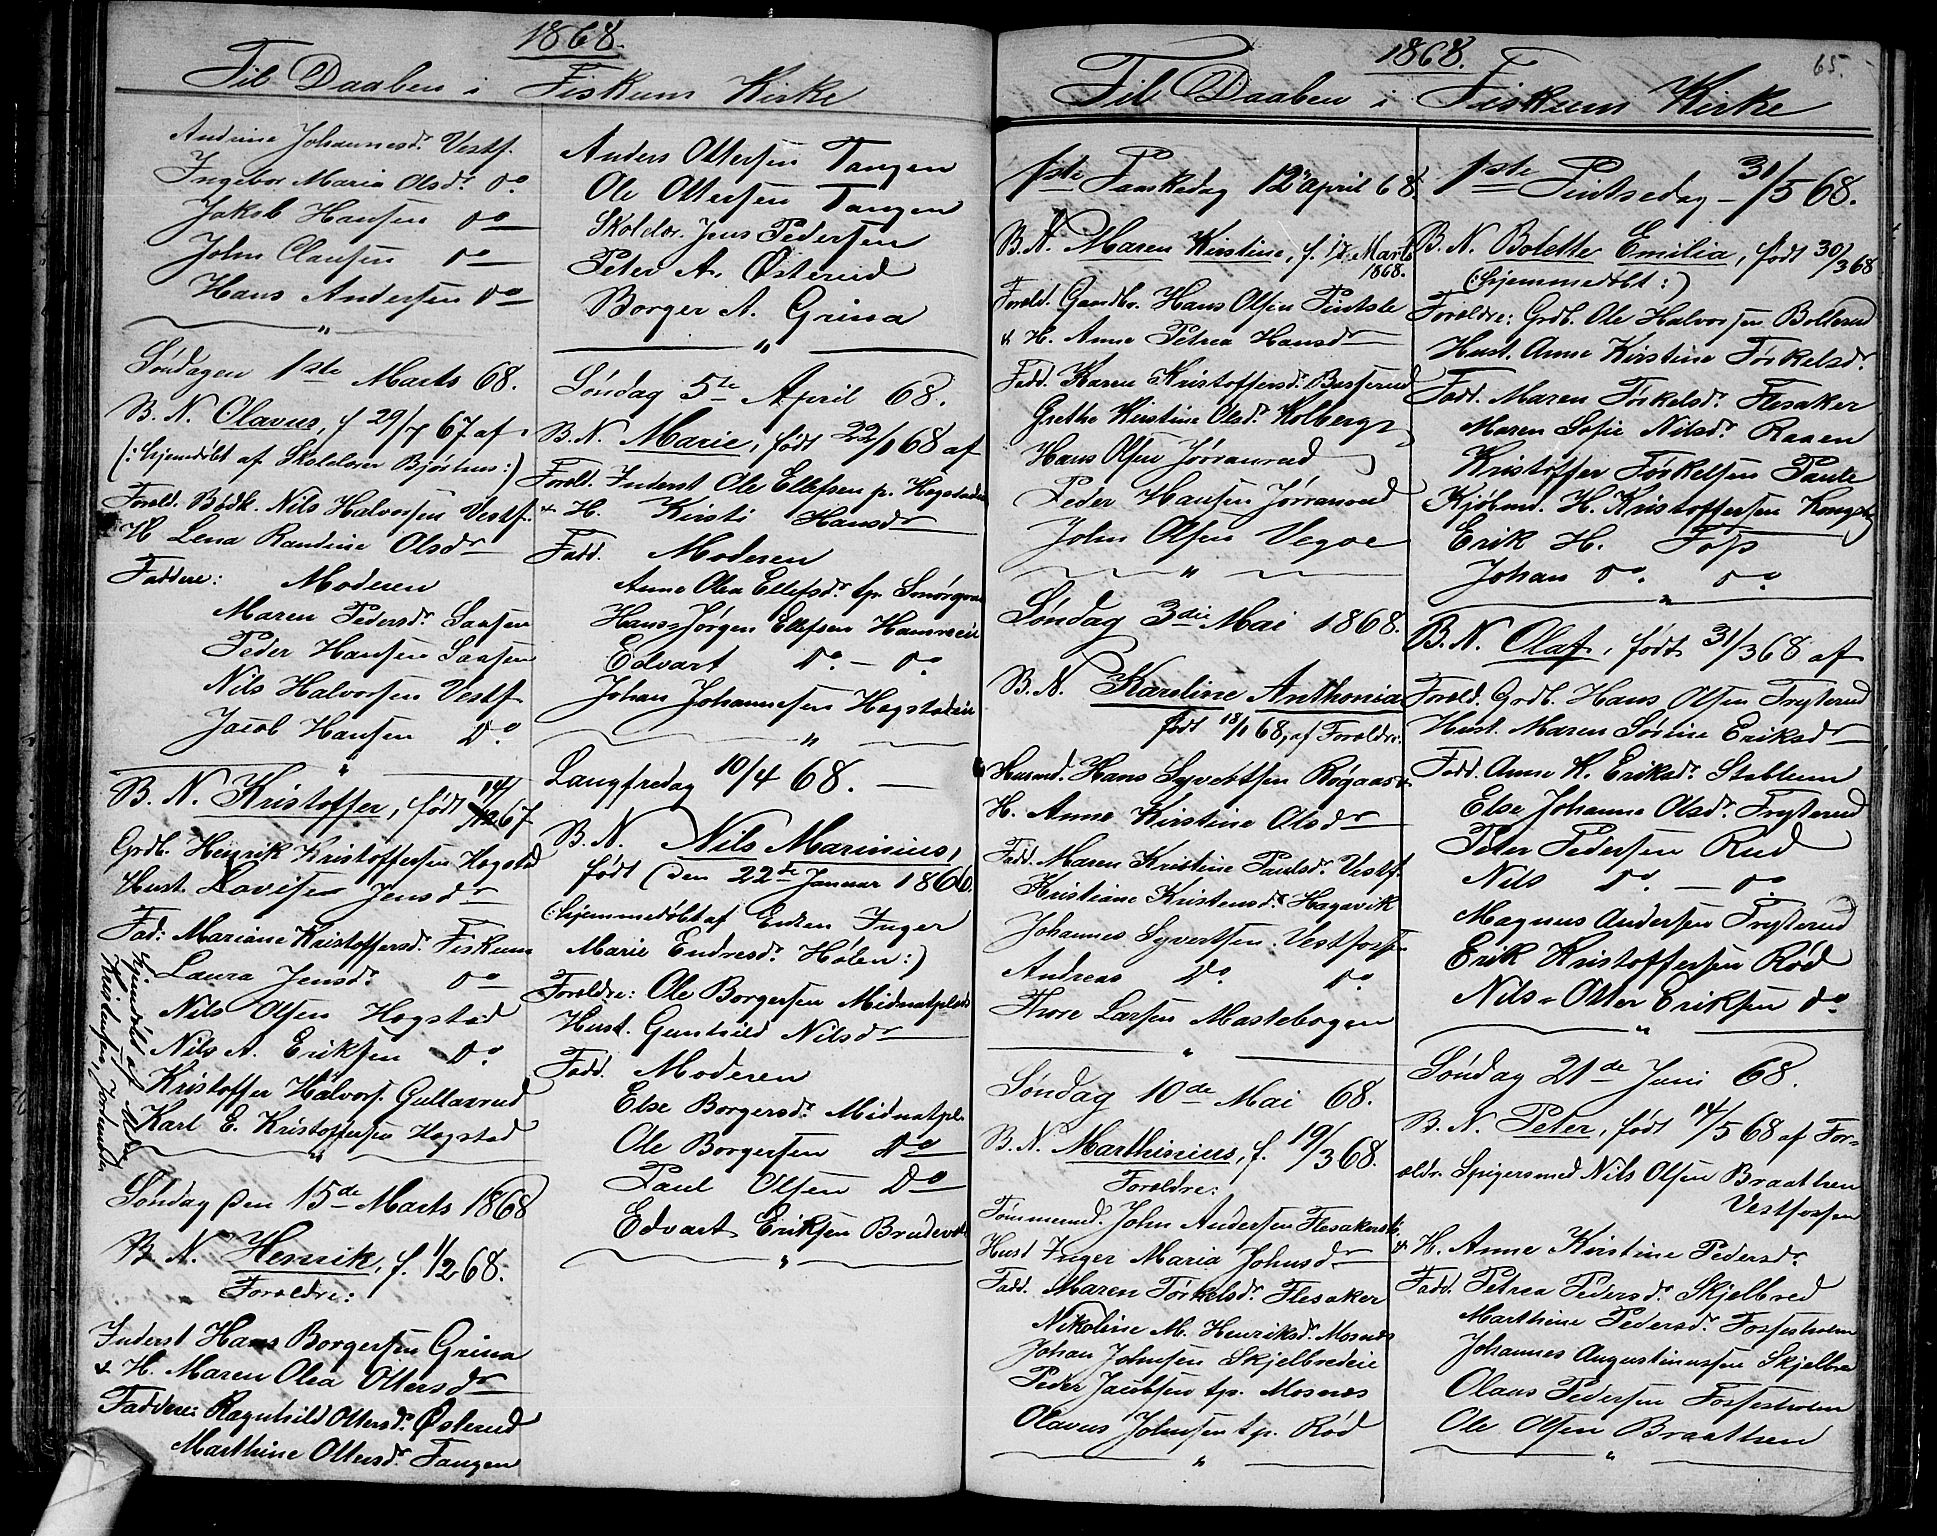 1868.
Til Daaben i Fiskum Kirke
Andrine Johannesdr. Vestf.
Ingebor Maria Olsdr. Do.
Jakob Hansen Do
John Clausen Do
Hans Andersen Do
"
Søndagen 1ste Marts 68.
B. N. Olavus, f 29/7 67 af
(: hjemdøbt af Skolelærer Bjørhus :)
Foræld. Bødk. Nils Halvorsen Vestf.
& H Lena Randine Olsdr
Faddere: Moderen
Maren Pedersdr.
Peder Hansen
Nils Halvorsen Vestf
Jacob Hansen Do.
"
B. N. Kristoffer, født 14/12 67
Grdb. Henrik Kristoffersen Hogstad
Hust. Lovise Jensdr
Fad: Mariane Kristoffersdr. Fiskum
Laura Jensdr. Do
Nils Olsen Hogstad
Nils A. Eriksen Do.
Kristoffer Halvors. Gullaurud
Karl E. Kristoffersen Hogstad
hjemdøbt af Mdm
Kristensen, Jordemoder
"
Søndag den 15de Marts 1868
B. N. Henrik, f. 1/2 68.
Forældre:
Inderst Hans Borgersen Grina
& H. Maren Olea Ottersdr
Faddere: Ragnhild Ottersdr. Østerud
Marthine Ottersdr. Tangen
Anders Ottersen Tangen
Ole Ottersen Tangen
Skolelær. Jens Pedersen
Peter A. Østerud
Borger A. Grina
"
Søndag 5te April 68.
B. N. Marie, født 22/1 68 af
Foræld. Inderst Ole Ellefsen p. Hogstadeie
& H. Kirsti Hansdr
Fadd. Moderen
Anne Olea Ellefsdr. tp.
Hans Jørgen Ellefsen
Edvart Do. — Do.
Johan Johannesen Hogstadeie
"
Langfredag 10/4 68. —
B. N. Nils Marinius,
født (den 22de Januar 1868.
(: hjemmedøbt af Enken Inger
Marie Endresdr. Holen :)
Forældre: Ole Borgersen Midnatplads
Hust. Gunhild Nilsdr
Fadd. Moderen
Else Borgersdr. Midnatpl.
Ole Borgersen Do
Paul Olsen Do
Edvart Eriksen
"
1868.
65.
Til Daaben i Fiskum Kirke
1ste Paaskedag 12te April 68.
B. N. Maren Kirstine, f. 17. Marts
1868.
Foræld. Gaardbr. Hans Olsen
& H. Anne Petrea Hansdr
Fadd. Karen Kristoffersdr. Besserud
Grethe Kirstine Olsdr. Kolberg
Hans Olsen Jørranrud
Peder Hansen Jørranrud
John Olsen Vegoe
"
Søndag 3die Mai 1868.
B. N. Karoline Anthonia
født 18/1 68, af Forældre:
Husmd. Hans Syvertsen Røgaas
H. Anne Kirstine Olsdr
Fadd. Maren Kristine Paulsdr. Vestf.
Kristiane Kristensdr. Hagavik
Johannes Syvertsen Vestfossen
Andreas Do. Do.
Thore Larsen Mastebogen
"
Søndag 10de Mai 68.
B. N. Marthinius, f. 19/3 68.
Forældre:
Tømmermd. John Andersen Flesakereie
Hust Inger Maria Johnsdr
Fadd. Maren Torkelsdr. Flesaker
Nikoline M. Henriksdr. Mosnæs
Johan Johnsen Skjelbredeie
Peder Jacobsen tp. Mosnæs
Olavus Johnsen tp. Rød
"
1ste Pintsedag — 31/5 68.
B. N. Bolette Emilia, født 30/3 68
(: hjemmedøbt :)
Forældre: Grdb. Ole Halvorsen Bollerud
Hust. Anne Kirstine Torkelsdr
Fadd. Maren Torkelsdr. Flesaker
Maren Sofie Nilsdr. Raaen
Kristoffer Torkelsen Paule
Kjøbmd. H. Kristoffersen Kongsb
Erik H. Fos
Johan Do. Do.
"
B. N. Olaf, født 31/3 68 af
Foræld. Grdb. Hans Olsen Frysterud
Hust. Maren Sørine Eriksdr
Fadd. Anne K. Eriksdr. Stablum
Else Johanne Olsdr. Frysterud
Peter Pedersen Rud
Nils Do. — Do.
Magnus Andersen Frysterud
Erik Kristoffersen Rød
Nils Otter Eriksen Do.
"
Søndag 21de Juni 68.
B. N. Peter, født 14/5 68 af For-
ældr. Spigersmed Nils Olsen Braathen
Vestfossen
& H. Anne Kirstine Pedersdr.
Fadd. Petrea Pedersdr. Skjelbred
Marthine Pedersdr. Fossesholm
Johannes Augustinussen Skjelbre
Olaus Pedersen Fossesholm
Ole Olsen Braathen
"